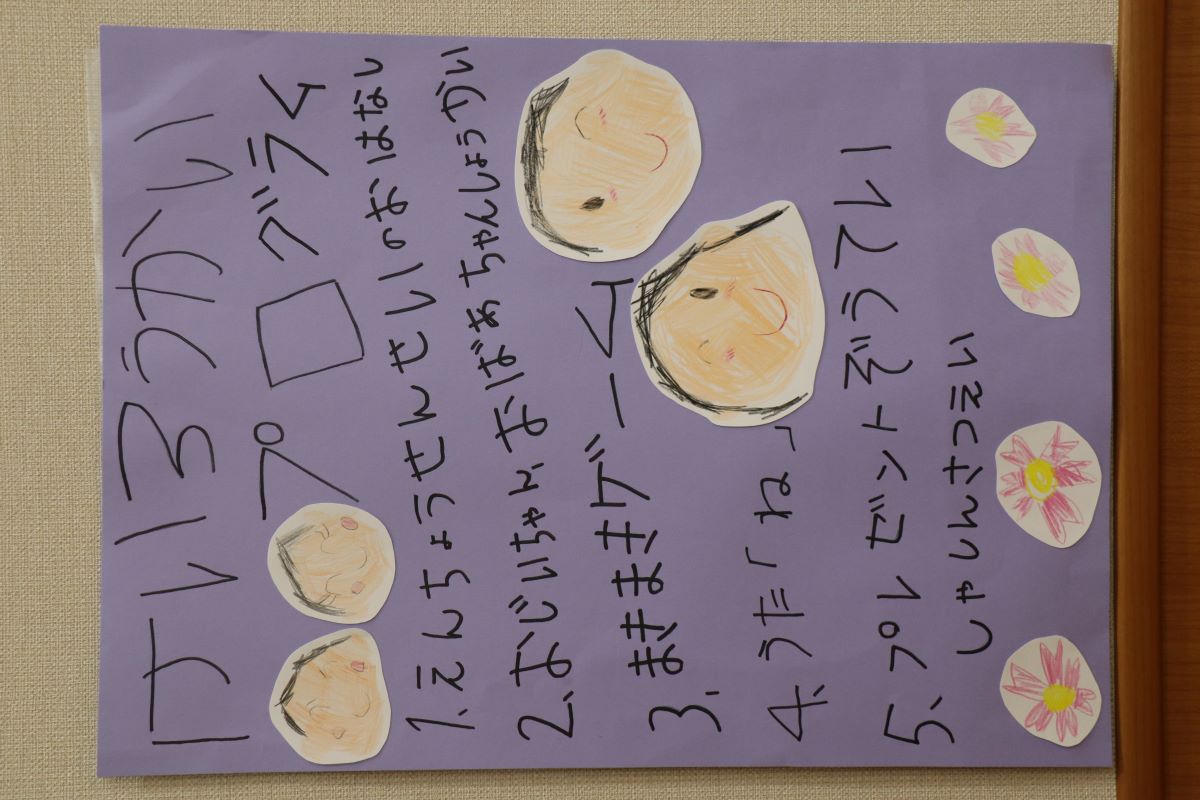 けいろうかい
プログラム
1.えんちょうせんせいのおはなし
2.おじいちゃん、おばあちゃんしょうかい
3.まきまきゲーム
4.うた「ね」
5.プレゼントぞうてい
しゃしんさつえい